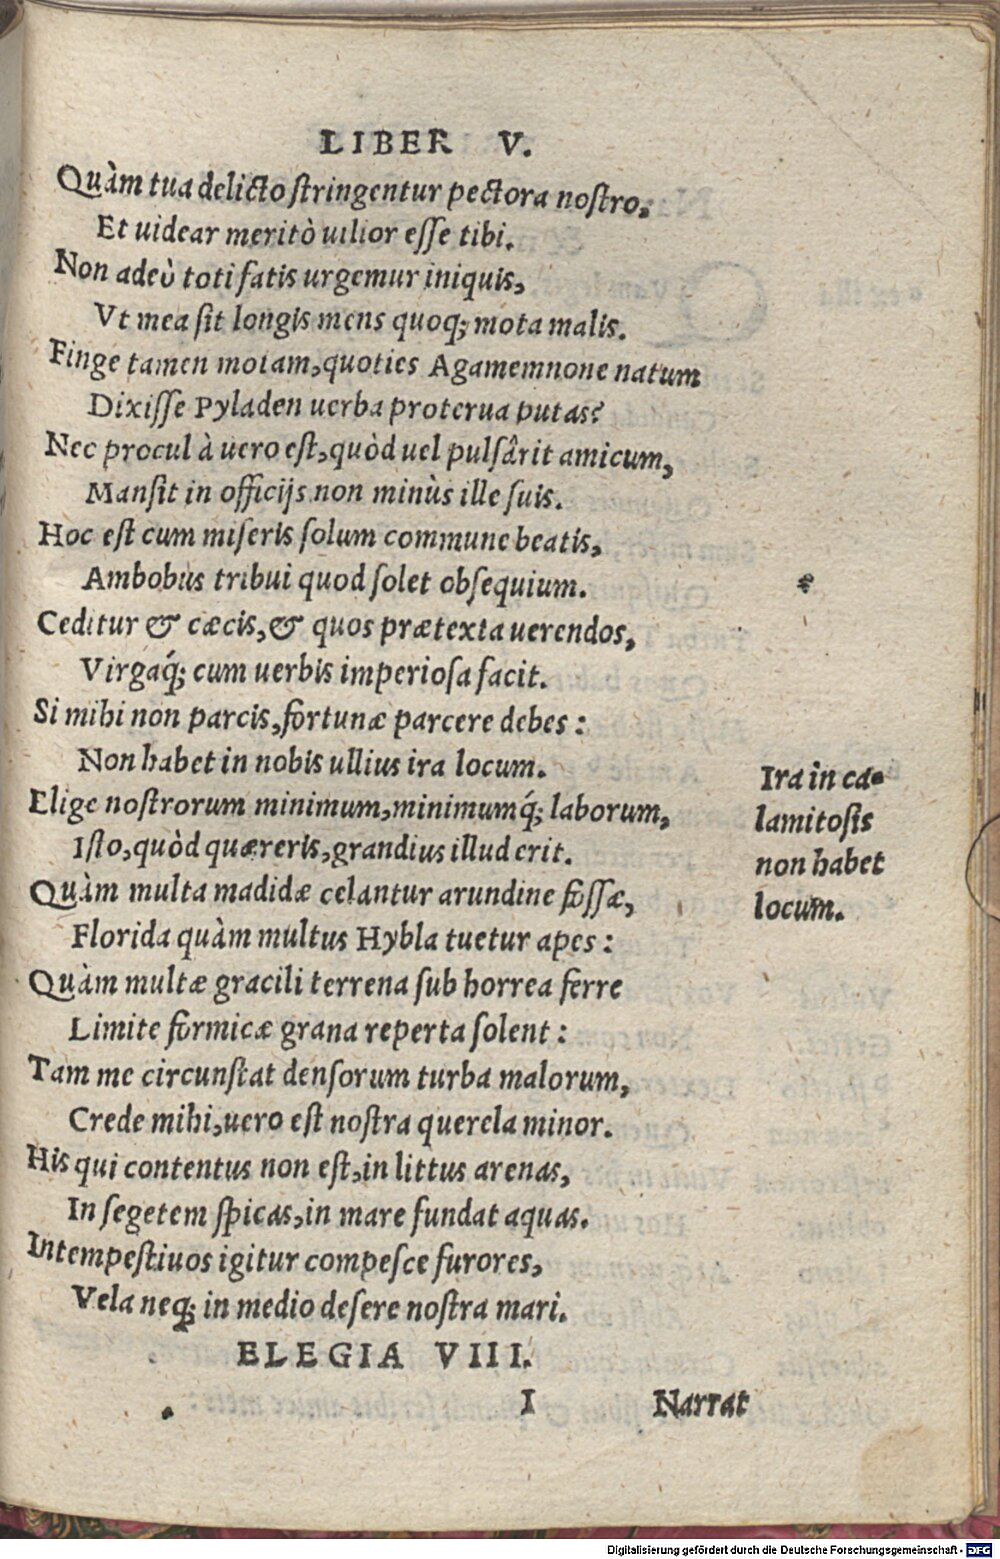 LIBER V.
Quàm tua delicto stringentur pectora nostro,
Et uidear meritò uilior esse tibi.
Non adeò toti fatis urgemur iniquis,
Vt mea sit longis mens quoq; mota malis.
Finge tamen motam, quoties Agamemnone natum
Dixisse Pyladen uerba proterua putas?
Nec procul à uero est, quòd uel pulsârit amicum,
Mansit in officijs non minùs ille suis.
Hoc est cum miseris solum commune beatis,
Ambobus tribui quod solet obsequium.
Ceditur & cæcis, & quos prætexta uerendos,
Virgaq́; cum uerbis imperiosa facit.
Si mihi non parcis, fortunæ parcere debes:
Non habet in nobis ullius ira locum.
Elige nostrorum minimum, minimumq́; laborum,
Isto, quòd quæreris, grandius illud erit.
Quàm multa madidæ celantur arundine fossæ,
Florida quàm multus Hybla tuetur apes:
Quàm multæ gracili terrena sub horrea ferre
Limite formicæ grana reperta solent:
Tam me circunstat densorum turba malorum,
Crede mihi, uero est nostra querela minor.
His qui contentus non est, in littus arenas,
In segetem spicas, in mare fundat aquas.
Intempestiuos igitur compesce furores,
Vela neq; in medio desere nostra mari.
ELEGIA VIII.
I Narrat
Ira in ca-
lamitosis
non habet
locum.
Digitalisierung gefördert durch die Deutsche Forschungsgemeinschaft - DFG